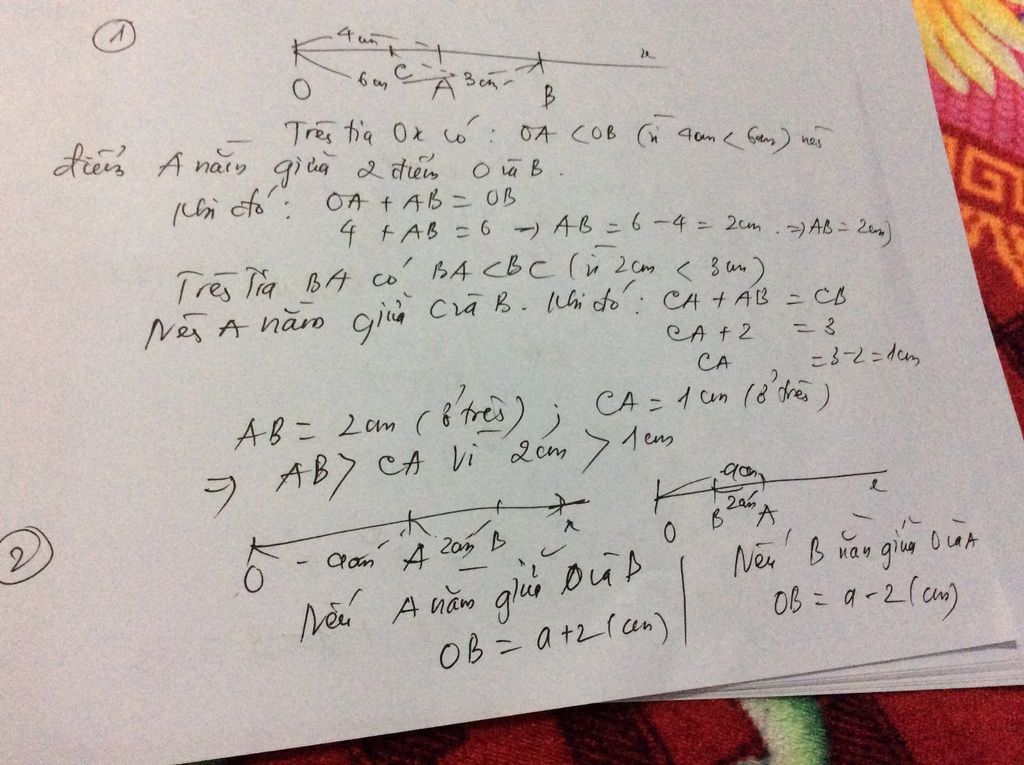 1
4cm
6cm C 3cm x
O A B
Trên tia Ox có: OA < OB (vì 4cm < 6cm) nên
điểm A nằm giữa 2 điểm O và B.
Khi đó: OA + AB = OB
4 + AB = 6 → AB = 6 - 4 = 2cm. ⇒ AB = 2cm)
Trên tia BA có BA < BC (vì 2cm < 3cm)
Nên A nằm giữa C và B. Khi đó: CA + AB = CB
CA + 2 = 3
CA = 3-2 = 1cm
AB = 2cm (ở trên); CA = 1cm (ở trên)
⇒ AB > CA vì 2cm > 1cm
2
O acm A 2cm B x
Nếu A nằm giữa O và B
OB = a+2 (cm)
acm
O B 2cm A x
Nếu B nằm giữa O và A
OB = a-2 (cm)